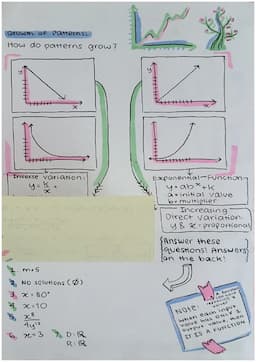 Growth of Patterns:
How do patterns grow?
y
x
y
x
Inverse Variation:
y = k/x
Exponential-Function-
y = ab^x + k
a = initial value
b = multiplier
Increasing
Direct Variation:
y & x = proportional
Answer these
Questions! Answers
on the back!
m = 5
NO solutions (∅)
x = 80°
x = 10
x^8/4y^12
x = 3
D: ℝ
R: ℝ
NOTE:
when each input
value has only 1
output value, then
IT IS A FUNCTION.